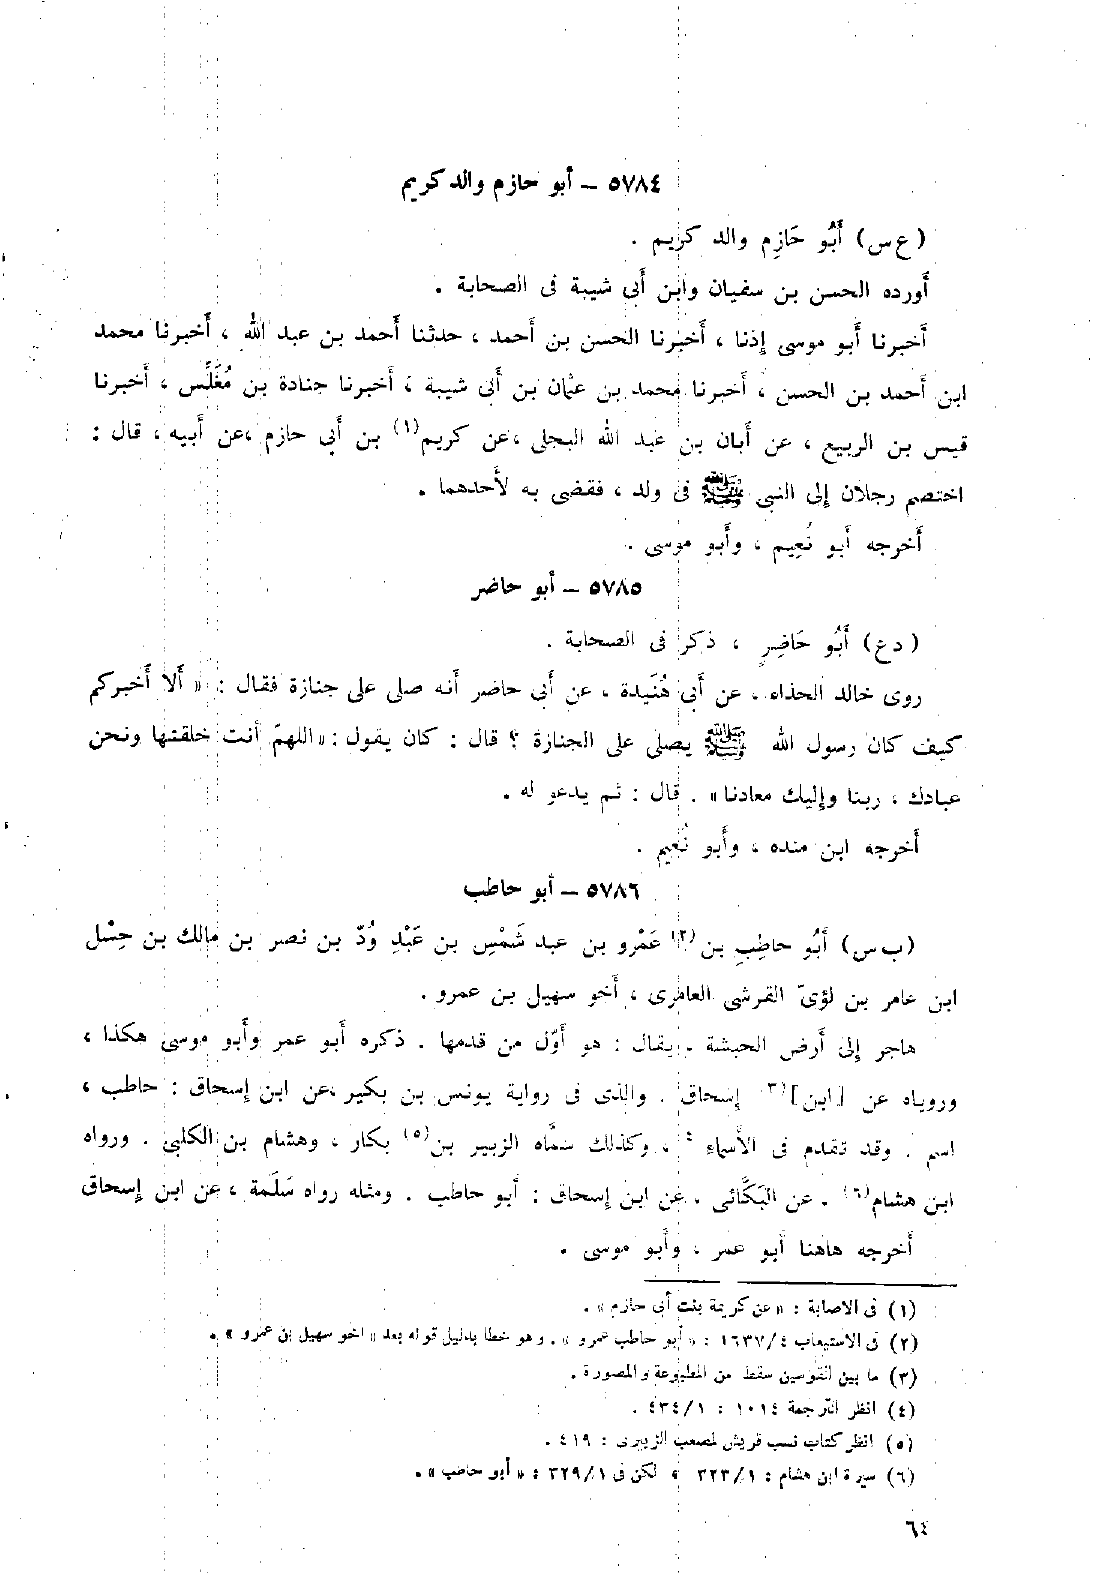 ٥٧٨٤ – أبو حازم والد كريم
(ع س) أَبُو حَازِم والد كريم .
أورده الحسن بن سفيان وابن أبي شيبة فى الصحابة .
أخبرنا أبو موسى إذنا ، أخبرنا الحسن بن أحمد ، حدثنا أحمد بن عبد الله ، أخبرنا محمد
ابن أحمد بن الحسن ، أخبرنا محمد بن عثمان بن أبي شيبة ، أخبرنا جنادة بن مُغَلِّس ، أخبرنا
قيس بن الربيع ، عن أبان بن عبد الله البجلى ، عن كريم(١) بن أبي حازم ، عن أبيه ، قال :
اختصم رجلان إلى النبى ﷺ فى ولد ، فقضى به لأحدهما .
أخرجه أبو نُعيم ، وأبو موسى .
٥٧٨٥ – أبو حاضر
(د ع) أَبُو حَاضِرٍ ، ذكر فى الصحابة .
روى خالد الحذاء ، عن أبي هُنَيدة ، عن أبى حاضر أنه صلى على جنازة فقال : « ألا أخبركم
كيف كان رسول الله ﷺ يصلى على الجنازة ؟ قال : كان يقول : « اللهمّ أنت خلقتها ونحن
عبادك ، ربنا وإليك معادنا » . قال : ثم يدعو له .
أخرجه ابن منده ، وأبو نُعيم .
٥٧٨٦ – أبو حاطب
(ب س) أَبُو حاطِبِ بن(٢) عَمْرو بن عبد شَمْسِ بن عَبْدِ وُدّ بن نصر بن مالك بن حِسْل
ابن عامر بن لؤىّ القرشى العامرى ، أخو سهيل بن عمرو .
هاجر إلى أرض الحبشة . يقال : هو أوّل من قدمها . ذكره أبو عمر وأبو موسى هكذا ،
وروياه عن [ابن](٣) إسحاق . والذى فى رواية يونس بن بكير ، عن ابن إسحاق : حاطب ،
اسم . وقد تقدم فى الأسماء ٤ ، وكذلك سمَّاه الزبير بن(٥) بكار ، وهشام بن الكلبي . ورواه
ابن هشام(٦) . عن البَكَّائى . عن ابن إسحاق : أبو حاطب . ومثله رواه سَلَمة ، عن ابن إسحاق
أخرجه هاهنا أبو عمر ، وأبو موسى .
(١) فى الاصابة : « عن كريمة بنت أبي حازم » .
(٢) فى الاستيعاب ٤/١٦٣٧ : « أبو حاطب عمرو » . وهو خطا بدليل قوله بعد « اخو سهيل بن عمرو » .
(٣) ما بين القوسين سقط من المطبوعة والمصورة .
(٤) انظر الترجمة ١٠١٤ : ١/٤٣٤ .
(٥) انظر كتاب نسب قريش لمصعب الزبيرى : ٤١٩ .
(٦) سيرة ابن هشام : ١/٣٢٣ ، لكن فى ١/٣٢٩ : « أبو حاطب » .
٦٤